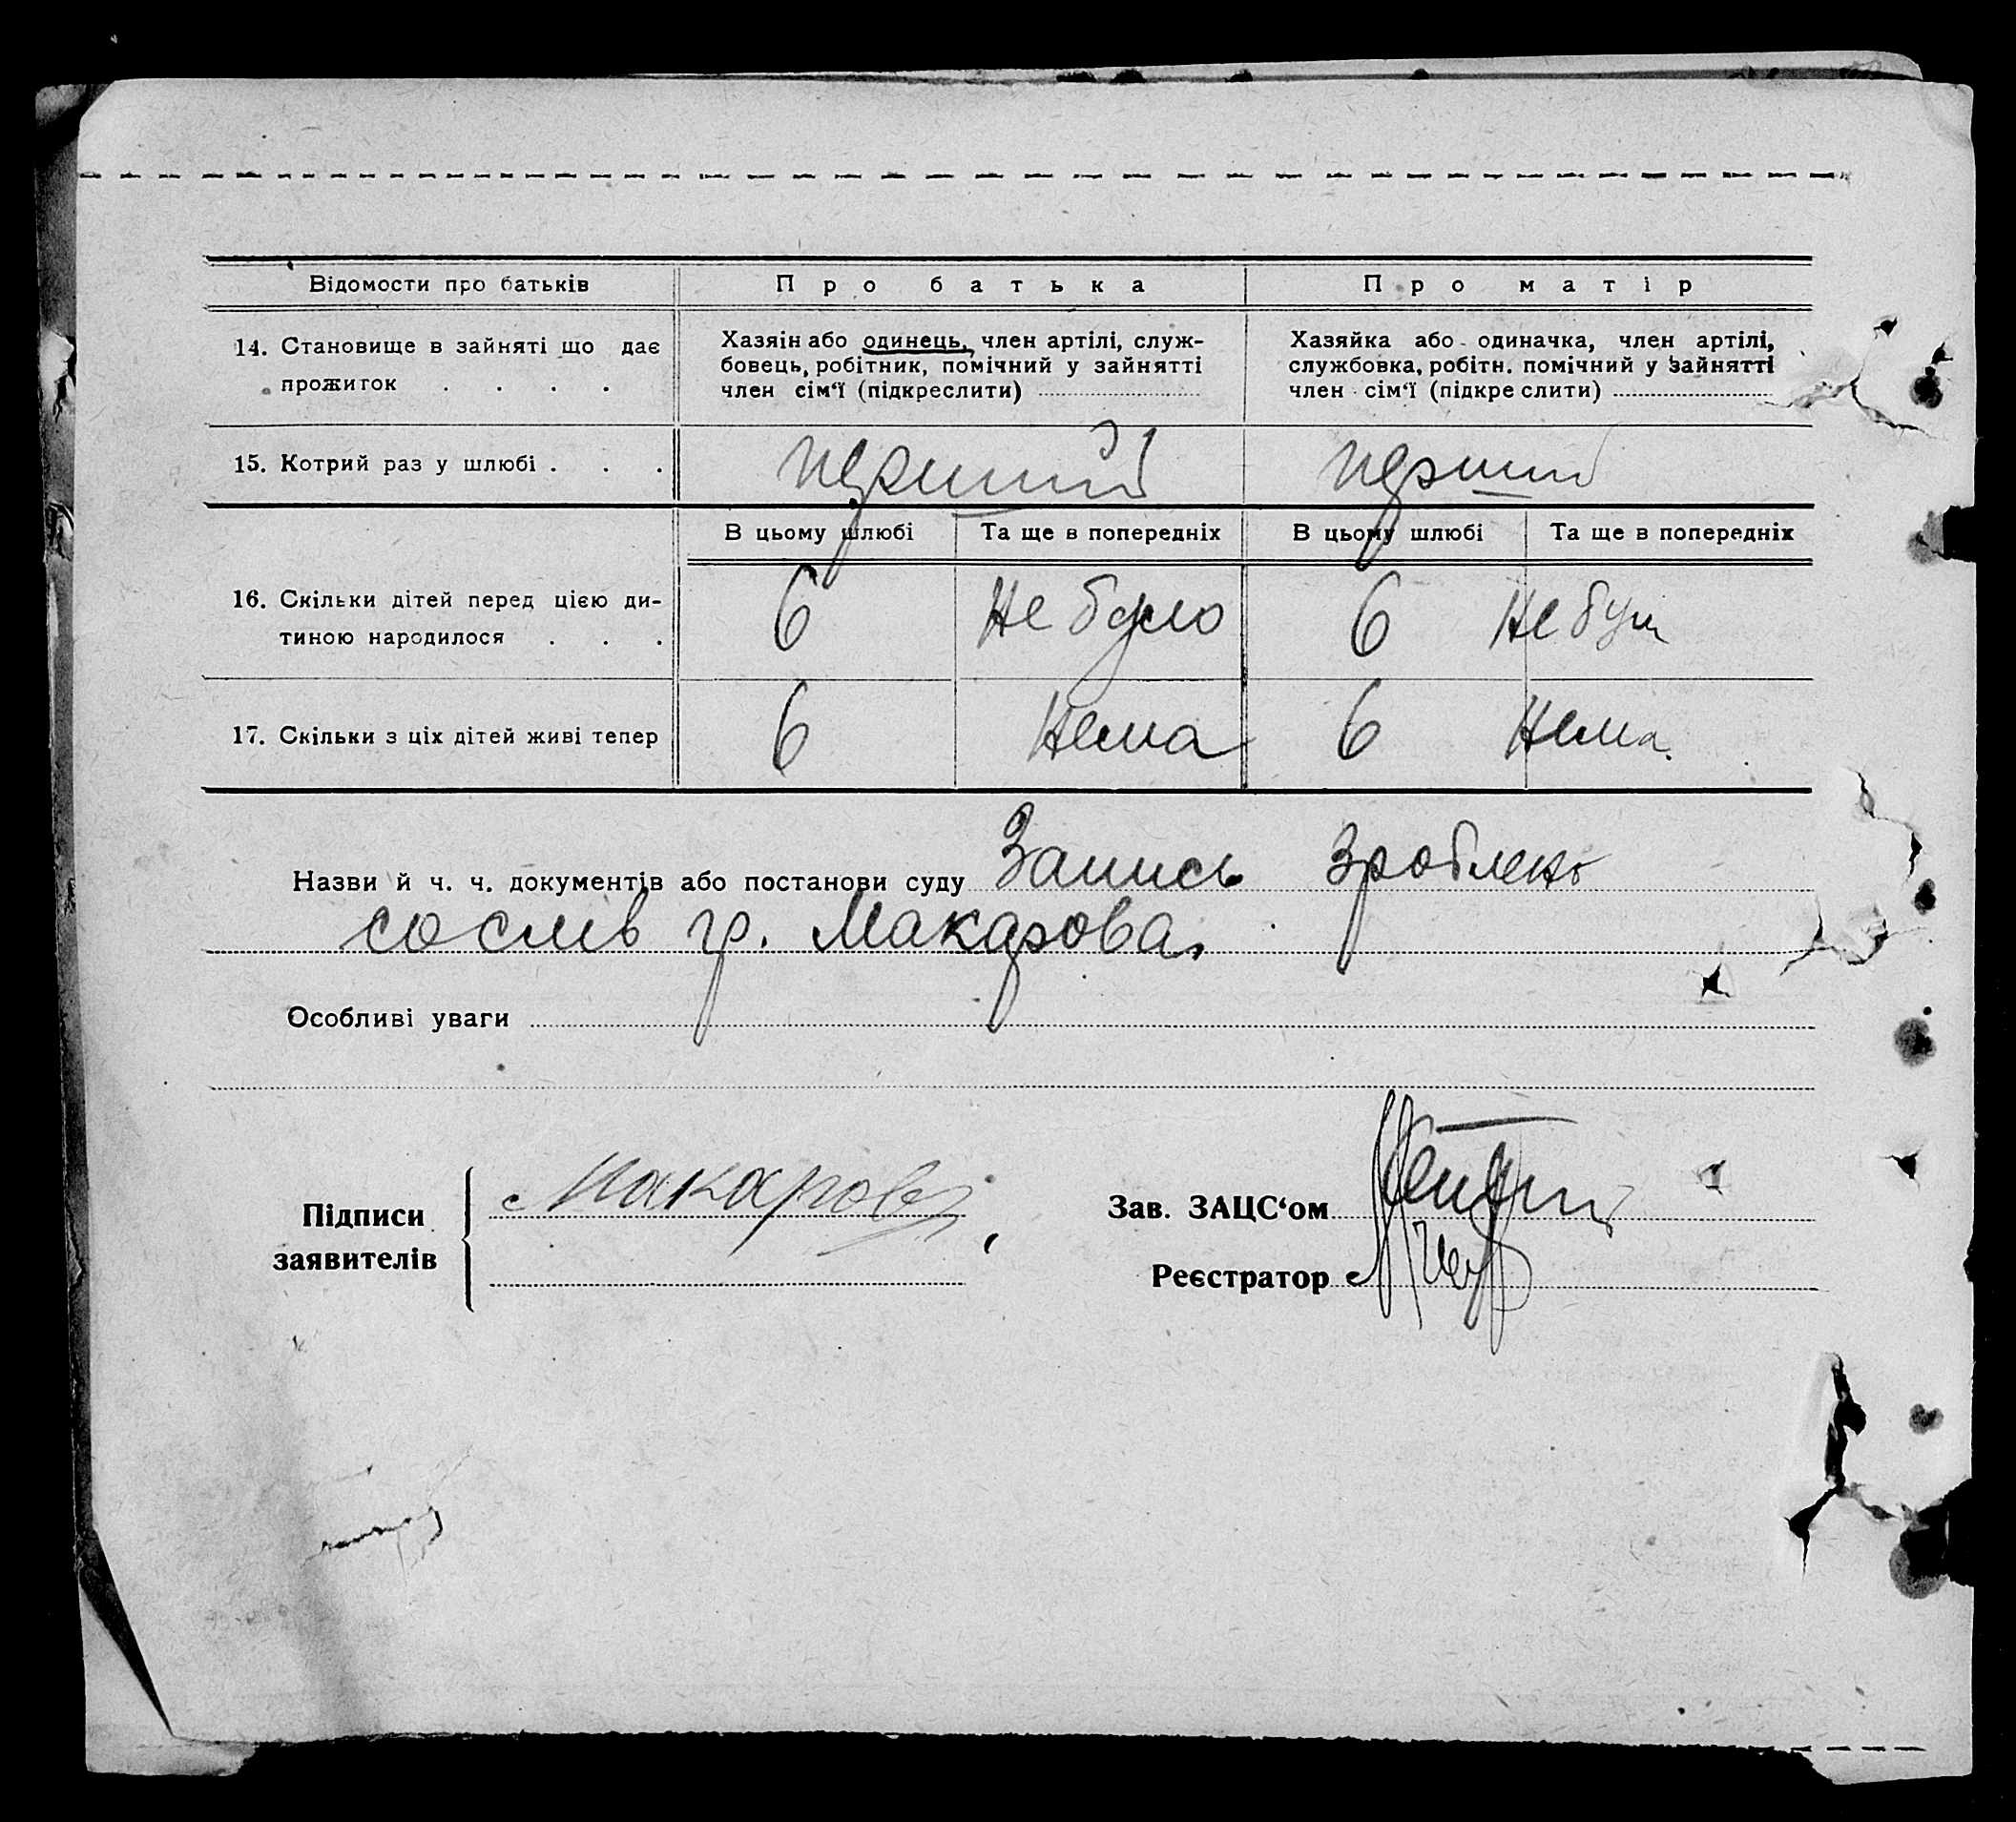 Відомости про батьків Про батька Про матір
14. Становище в зайняті що дає
прожиток . . . .
Хазяін або одинець, член артілі, служ-
бовець, робітник, помічний у зайнятті
член сім‘ї (підкреслити)
Хазяйка або одиначка, член артілі,
службовка, робітн. помічний у зайнятті
член сім‘ї (підкре слити)
15. Котрий раз у шлюбі . . . перший перший
В цьому шлюбі Та ще в попередніх В цьому шлюбі Та ще в попередніх
16. Скільки дітей перед цією ди-
тиною народилося . . .
6 Не було 6 Не було
17. Скільки з ціх дітей живі тепер 6 Нема 6 Нема.
Назви й ч. ч. документів або постанови суду Запись зроблено
со слів гр. Макарова.
Особливі уваги
Підписи
заявителів
Макаров
Зав. ЗАЦС‘ом
Реєстратор